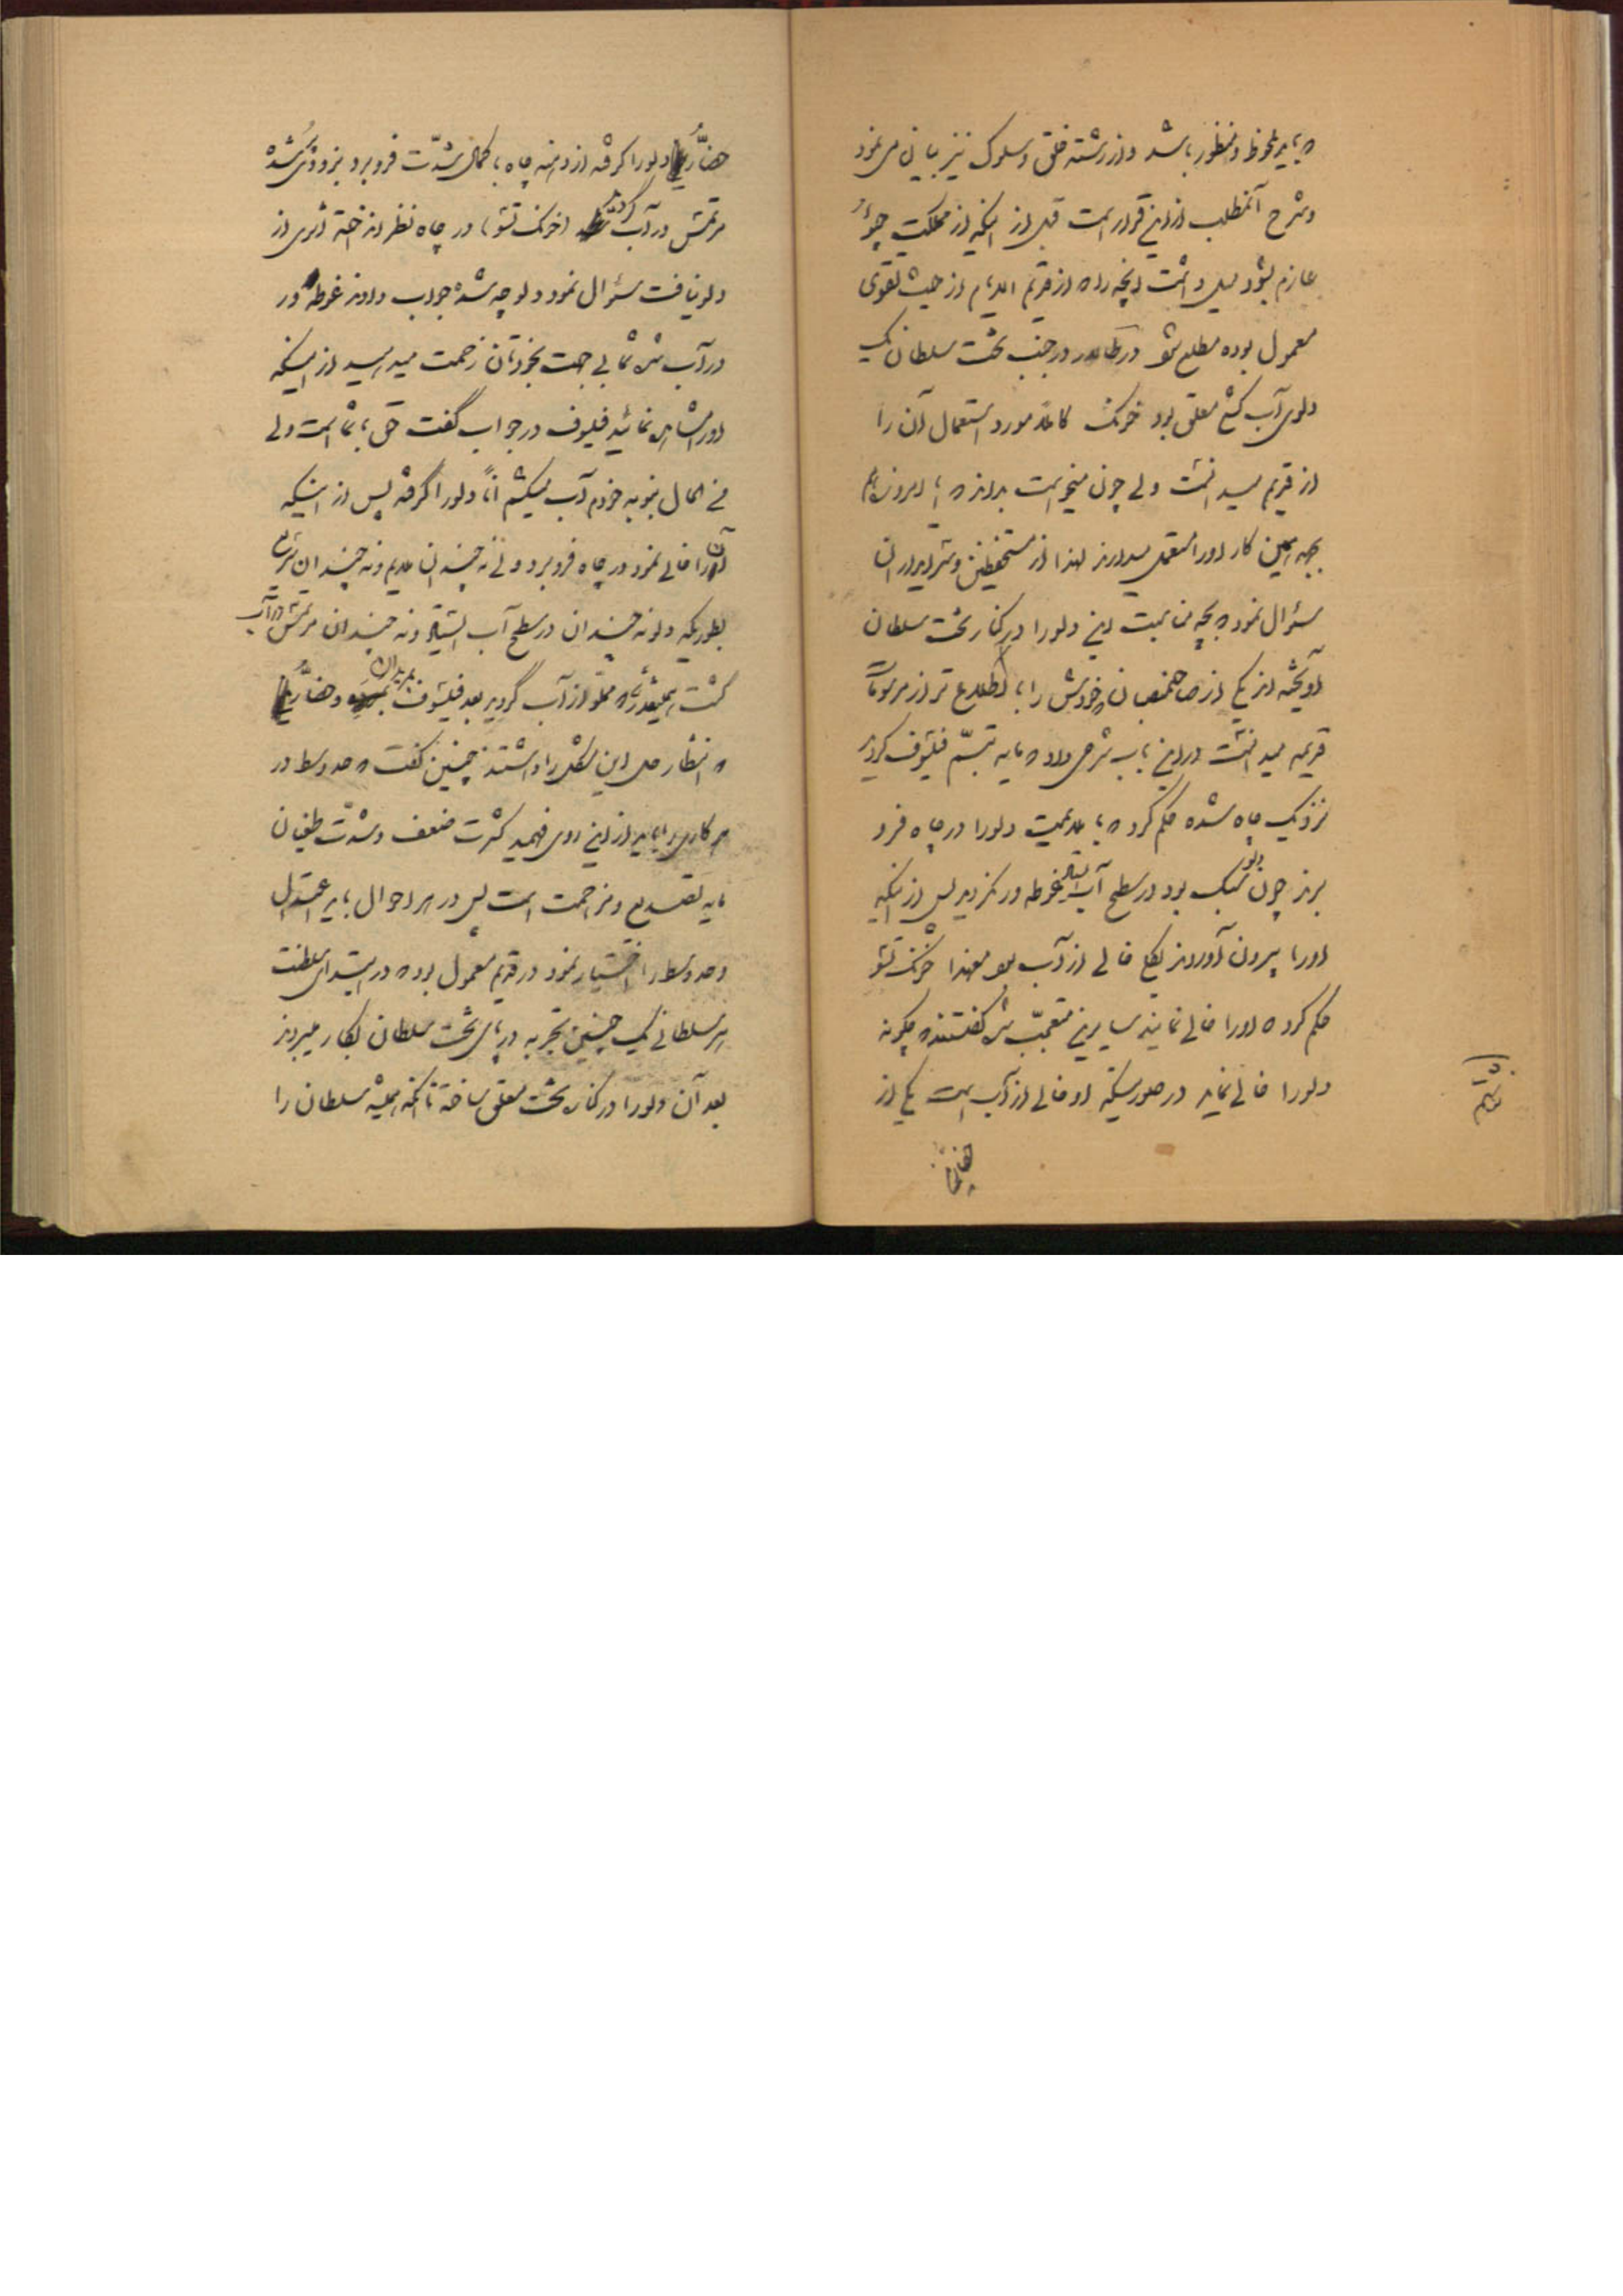 که باید ملحوظ و منظور باشد و از رشته خلق و سلوک نیز بیان می نمود
و شرح آنمطلب از این قرار است قبل از اینکه از مملکت چو
عازم بشود میل داشت آنچه را که از قدیم الایام از حیث تقوی
معمول بوده مطلع شود در تالار در جنب تخت سلطان یک
دلوی آب کشی معلق بود خونک کاملاً مورد استعمال آن را
از قدیم میدانست ولی چون میخواست بداند که تا امروز هم
بچه این کار او را مستعمل میدارند لهذا از مستحفظین و سرایداران
سئوال نمود که بچه مناسبت این دلو را در کنار تخت سلطان
آویخته اند یکی از صاحبمنصبان خودش را با اطلاع تر از مرسومات
قدیمه میدانست در این باب شرحی داد که مایه تبسم فیلسوف گردید
نزدیک چاه شده حکم کرد که با ملایمت دلو را در چاه فرو
برند چون دلو سبک بود در سطح آب ایستاد غوطه ور نگردید پس از اینکه
او را بیرون آوردند بکلی خالی از آب بود معهذا خونک تسو
حکم کرد که او را خالی نمایند سایرین متعجب شده گفتند که چگونه
دلو را خالی نماید در صورتیکه او خالی از آب است یکی از
حضار دلو را گرفته از دهنه چاه با کمال شدت فرو برد بزودی پر شده
در آب خونک تسو در چاه نظر انداخته اثری از
دلو نیافت سئوال نمود دلو چه شد جواب دادند غوطه ور
در آب شد شما بی جهت بخودتان زحمت میدهید از اینکه
او را مشاهده نمائید فیلسوف در جواب گفت حق با شما است ولی
فی الحال بنوبه خودم آب میکشم آناً دلو را گرفته پس از اینکه
آن را خالی نمود در چاه فرو برد ولی نه چندان ملایم و نه چندان بشدت
بطوریکه دلو نه چندان در سطح آب ایستاد و نه چندان در آب
گشت همینقدر شد که مملو از آب گردید بعد فیلسوف و حضار
که انتظار حل این مشکل را داشتند چنین گفت که حد وسط در
هر کاری باید از این روی فهمید کثرت ضعف و شدت طغیان
مایه تصدیع و مزاحمت است پس در هر احوال باید اعتدال
و حد وسط را اختیار نمود در قدیم معمول بود که در ابتدای سلطنت
هر سلطانی یک چنین تجربه در پای تخت سلطان بکار میبردند
بعد آن دلو را در کنار تخت معلق ساخته تا آنکه همیشه سلطان را